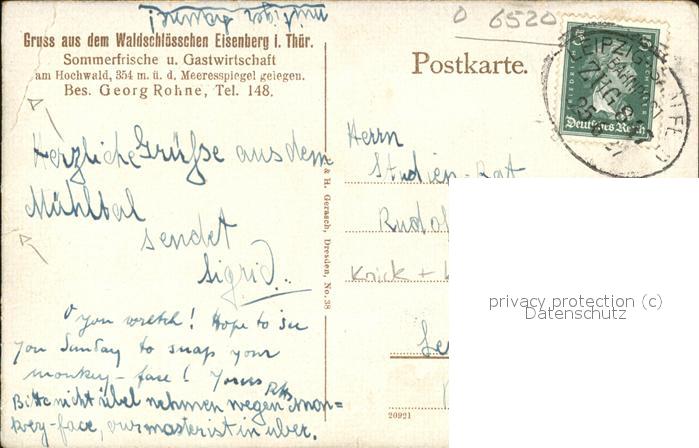 richtiger
Gruss aus dem Waldschlösschen Eisenberg i. Thür.
Sommerfrische u. Gastwirtschaft
am Hochwald, 354 m. ü. d. Meeresspiegel gelegen.
Bes. Georg Rohne, Tel. 148.
Herzliche Grüße aus dem
Mühltal
sendet
Sigrid.
O you wretch! Hope to see
you Sunday to snap your
monkey-face! Yours
Bitte nicht übel nehmen wegen mon=
key-face, our master ist in über.
& H. Gerasch, Dresden, No. 38
0 6520
Postkarte.
Deutsches Reich
LEIPZIG
BAHNPOST
ZUG
Herrn
Studien-Rat
Rudol
Knick +
20921
privacy protection (c)
Datenschutz